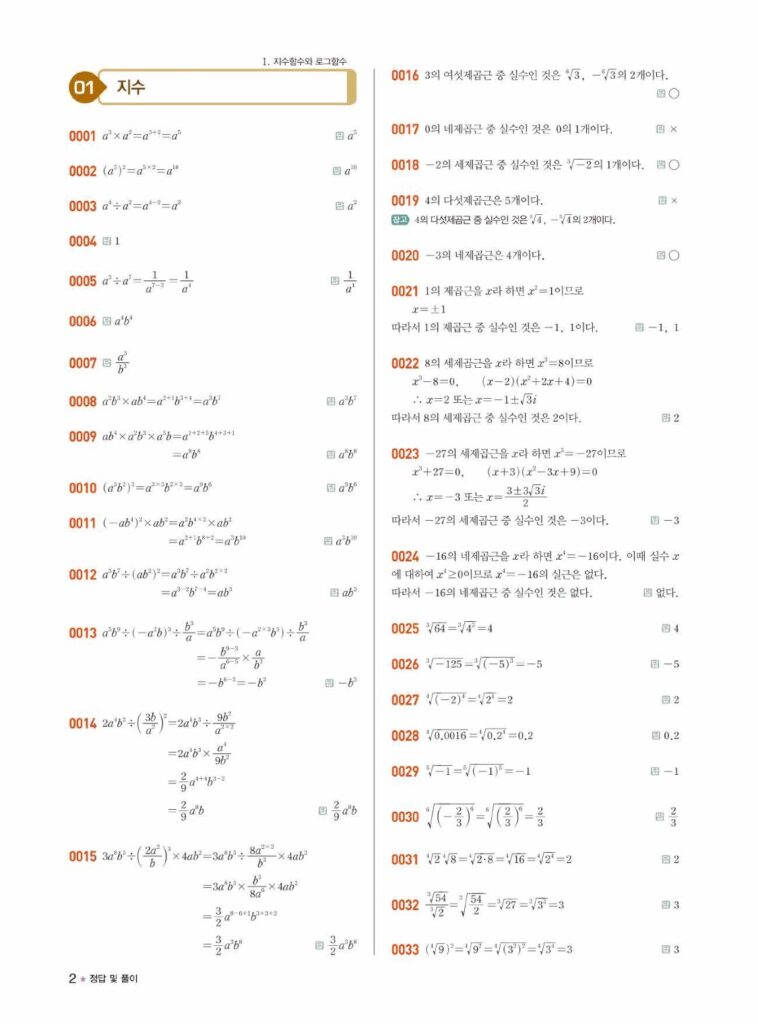 Ⅰ. 지수함수와 로그함수
01 지수
0001 a³×a²=a³⁺²=a⁵ 답 a⁵
0002 (a⁵)²=a⁵ˣ²=a¹⁰ 답 a¹⁰
0003 a⁴÷a²=a⁴⁻²=a² 답 a²
0004 답 1
0005 a³÷a⁷=1/a⁷⁻³=1/a⁴ 답 1/a⁴
0006 답 a⁴b⁴
0007 답 a³/b³
0008 a²b³×ab⁴=a²⁺¹b³⁺⁴=a³b⁷ 답 a³b⁷
0009 ab⁴×a²b³×a⁵b=a¹⁺²⁺⁵b⁴⁺³⁺¹
=a⁸b⁸ 답 a⁸b⁸
0010 (a³b²)³=a³ˣ³b²ˣ³=a⁹b⁶ 답 a⁹b⁶
0011 (-ab⁴)²×ab²=a²b⁴ˣ²×ab²
=a²⁺¹b⁸⁺²=a³b¹⁰ 답 a³b¹⁰
0012 a³b⁷÷(ab²)²=a³b⁷÷a²b²ˣ²
=a³⁻²b⁷⁻⁴=ab³ 답 ab³
0013 a⁵b⁹÷(-a²b)³÷b³/a=a⁵b⁹÷(-a²ˣ³b³)÷b³/a
=-b⁹⁻³/a⁶⁻⁵×a/b³
=-b⁶⁻³=-b³ 답 -b³
0014 2a⁴b³÷(3b/a²)²=2a⁴b³÷9b²/a²ˣ²
=2a⁴b³×a⁴/9b²
=2/9a⁴⁺⁴b³⁻²
=2/9a⁸b 답 2/9a⁸b
0015 3a⁸b³÷(2a²/b)³×4ab²=3a⁸b³÷8a²ˣ³/b³×4ab²
=3a⁸b³×b³/8a⁶×4ab²
=3/2a⁸⁻⁶⁺¹b³⁺³⁺²
=3/2a³b⁸ 답 3/2a³b⁸
2 ★ 정답 및 풀이
0016 3의 여섯제곱근 중 실수인 것은 ⁶√3, -⁶√3의 2개이다.
답 ○
0017 0의 네제곱근 중 실수인 것은 0의 1개이다. 답 ×
0018 -2의 세제곱근 중 실수인 것은 ³√-2의 1개이다. 답 ○
0019 4의 다섯제곱근은 5개이다. 답 ×
참고 4의 다섯제곱근 중 실수인 것은 ⁵√4, -⁵√4의 2개이다.
0020 -3의 네제곱근은 4개이다. 답 ○
0021 1의 제곱근을 x라 하면 x²=1이므로
x=±1
따라서 1의 제곱근 중 실수인 것은 -1, 1이다. 답 -1, 1
0022 8의 세제곱근을 x라 하면 x³=8이므로
x³-8=0, (x-2)(x²+2x+4)=0
∴ x=2 또는 x=-1±√3i
따라서 8의 세제곱근 중 실수인 것은 2이다. 답 2
0023 -27의 세제곱근을 x라 하면 x³=-27이므로
x³+27=0, (x+3)(x²-3x+9)=0
∴ x=-3 또는 x=3±3√3i/2
따라서 -27의 세제곱근 중 실수인 것은 -3이다. 답 -3
0024 -16의 네제곱근을 x라 하면 x⁴=-16이다. 이때 실수 x
에 대하여 x⁴≥0이므로 x⁴=-16의 실근은 없다.
따라서 -16의 네제곱근 중 실수인 것은 없다. 답 없다.
0025 ³√64=³√4³=4 답 4
0026 ³√-125=³√(-5)³=-5 답 -5
0027 ⁴√(-2)⁴=⁴√2⁴=2 답 2
0028 ⁴√0.0016=⁴√0.2⁴=0.2 답 0.2
0029 ⁵√-1=⁵√(-1)⁵=-1 답 -1
0030 ⁶√(-2/3)⁶=⁶√(2/3)⁶=2/3 답 2/3
0031 ⁴√2 ⁴√8=⁴√2·8=⁴√16=⁴√2⁴=2 답 2
0032 ³√54/³√2=³√54/2=³√27=³√3³=3 답 3
0033 (⁴√9)²=⁴√9²=⁴√(3²)²=⁴√3⁴=3 답 3